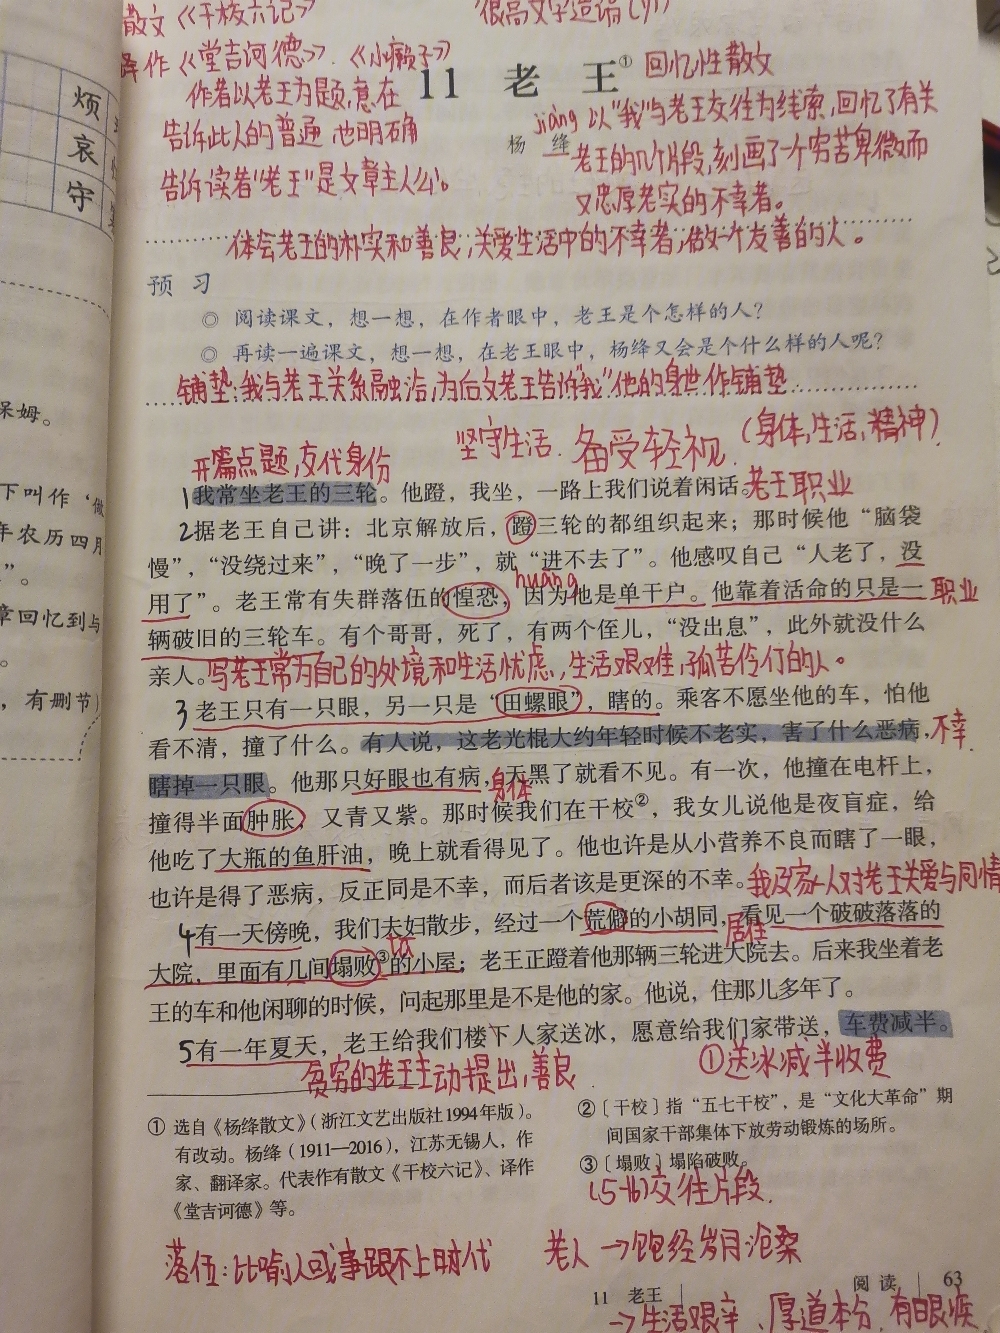 散文《干校六记》
很高文字造诣(外)
译作《堂吉诃德》.《小癞子》
11 老 王① 回忆性散文
作者以老王为题,意在
告诉此人的普通,也明确
告诉读者"老王"是文章主人公。
杨 绛
jiàng 以"我"与老王交往为线索,回忆了有关
老王的几个片段,刻画了一个穷苦卑微而
又忠厚老实的不幸者。
体会老王的朴实和善良,关爱生活中的不幸者,做一个友善的人。
预 习
◎ 阅读课文，想一想，在作者眼中，老王是个怎样的人？
◎ 再读一遍课文，想一想，在老王眼中，杨绛又会是个什么样的人呢？
铺垫:我与老王关系融洽,为后文老王告诉"我"他的身世作铺垫
坚守生活 备受轻视 (身体,生活,精神)
开篇点题,交代身份
1我常坐老王的三轮。他蹬，我坐，一路上我们说着闲话。老王职业
2据老王自己讲：北京解放后，蹬三轮的都组织起来；那时候他“脑袋
慢”，“没绕过来”，“晚了一步”，就“进不去了”。他感叹自己“人老了，没
huáng
用了”。老王常有失群落伍的惶恐，因为他是单干户。他靠着活命的只是一 职业
辆破旧的三轮车。有个哥哥，死了，有两个侄儿，“没出息”，此外就没什么
亲人。写老王常为自己的处境和生活忧虑,生活艰难,孤苦伶仃的人。
3老王只有一只眼，另一只是“田螺眼”，瞎的。乘客不愿坐他的车，怕他
看不清，撞了什么。有人说，这老光棍大约年轻时候不老实，害了什么恶病， 不幸
瞎掉一只眼。他那只好眼也有病，天黑了就看不见。有一次，他撞在电杆上，
身体
撞得半面肿胀，又青又紫。那时候我们在干校②，我女儿说他是夜盲症，给
他吃了大瓶的鱼肝油，晚上就看得见了。他也许是从小营养不良而瞎了一眼，
也许是得了恶病，反正同是不幸，而后者该是更深的不幸。我及家人对老王关爱与同情
4有一天傍晚，我们夫妇散步，经过一个荒僻的小胡同，看见一个破破落落的
居住
大院，里面有几间塌败③的小屋；老王正蹬着他那辆三轮进大院去。后来我坐着老
王的车和他闲聊的时候，问起那里是不是他的家。他说，住那儿多年了。
5有一年夏天，老王给我们楼下人家送冰，愿意给我们家带送，车费减半。
贫穷的老王主动提出,善良 ①送冰减半收费
① 选自《杨绛散文》（浙江文艺出版社1994年版）。
有改动。杨绛（1911—2016），江苏无锡人，作
家、翻译家。代表作有散文《干校六记》、译作
《堂吉诃德》等。
②〔干校〕指“五七干校”，是“文化大革命”期
间国家干部集体下放劳动锻炼的场所。
③〔塌败〕塌陷破败。
(5-16)交往片段.
落伍:比喻人或事跟不上时代
老人→饱经岁月沧桑
11 老王 阅 读 63
→生活艰辛、厚道本分,有眼疾
烦
哀
守
保姆。
下叫作‘做
年农历四月
”。
章回忆到与
。
，有删节）